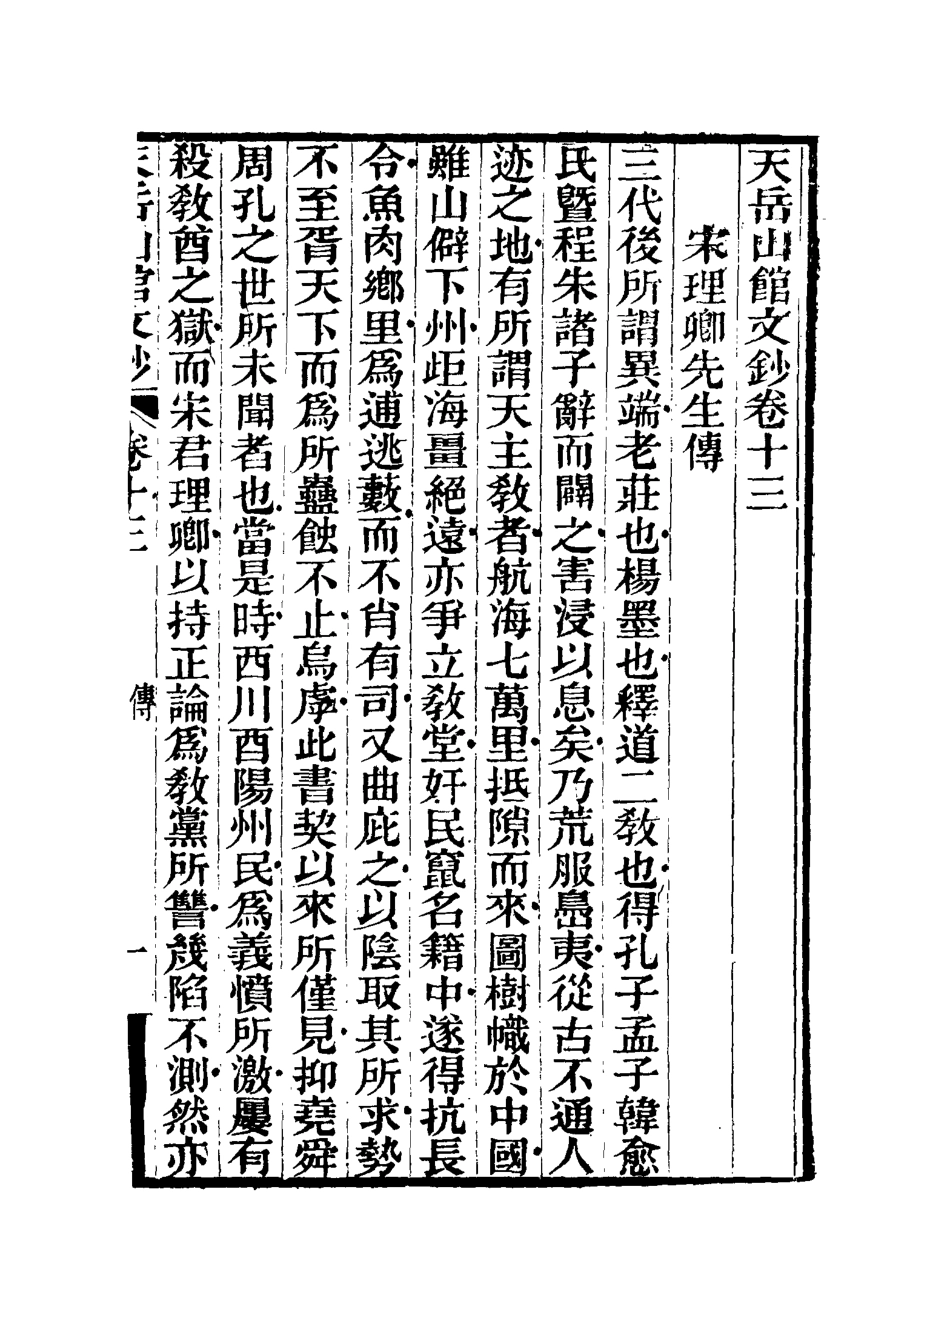 天岳山館文鈔卷十三
宋理卿先生傳
三代後所謂異端老莊也楊墨也釋道二敎也得孔子孟子韓愈
氏曁程朱諸子辭而闢之害浸以息矣乃荒服島夷從古不通人
迹之地有所謂天主敎者航海七萬里抵隙而來圖樹幟於中國
雖山僻下州岠海畺絕遠亦爭立敎堂奸民竄名籍中遂得抗長
令魚肉鄕里爲逋逃藪而不肖有司又曲庇之以陰取其所求勢
不至胥天下而爲所蠱蝕不止烏虖此書契以來所僅見抑堯舜
周孔之世所未聞者也當是時西川酉陽州民爲義憤所激屢有
殺敎酋之獄而宋君理卿以持正論爲敎黨所讐幾陷不測然亦
天岳山館文鈔 卷十三 傳 一